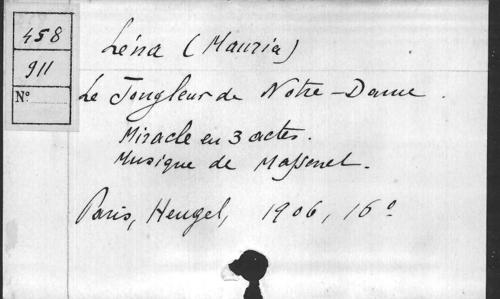 458
911
N°
Léna (Mauria)
Le Jongleur de Notre-Dame.
Miracle en 3 actes.
Musique de Massenet.
Paris, Heugel, 1906, 16°